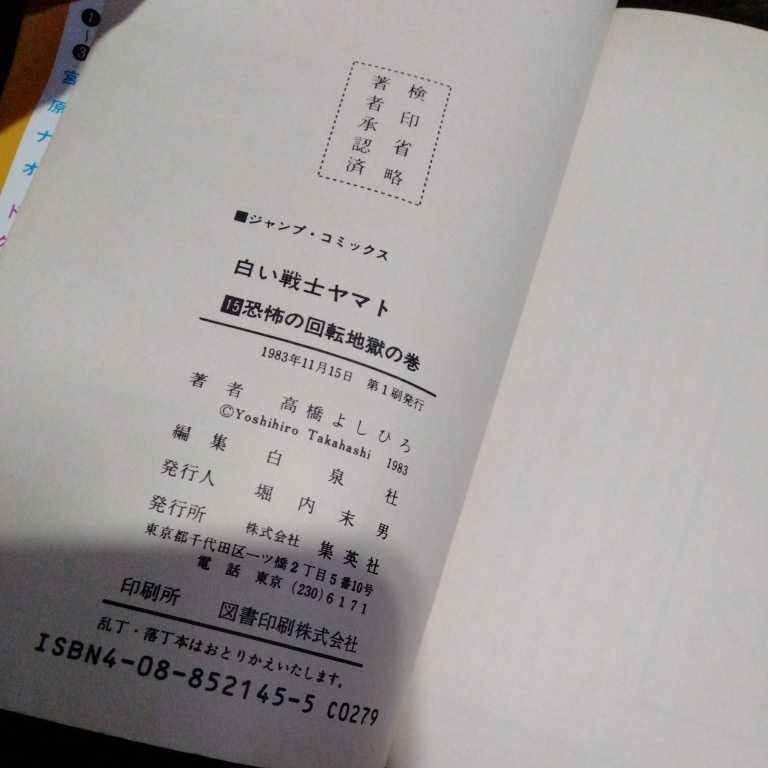 検印省略
著者承認済
■ジャンプ・コミックス
白い戦士ヤマト
15恐怖の回転地獄の巻
1983年11月15日 第1刷発行
著者 高橋よしひろ
©Yoshihiro Takahashi 1983
編集 白泉社
発行人 堀内末男
発行所 株式会社 集英社
東京都千代田区一ツ橋2丁目5番10号
電話 東京 (230) 6171
印刷所 図書印刷株式会社
乱丁・落丁本はおとりかえいたします。
ISBN4-08-852145-5 C0279
❶〜❸
宮原ナオ